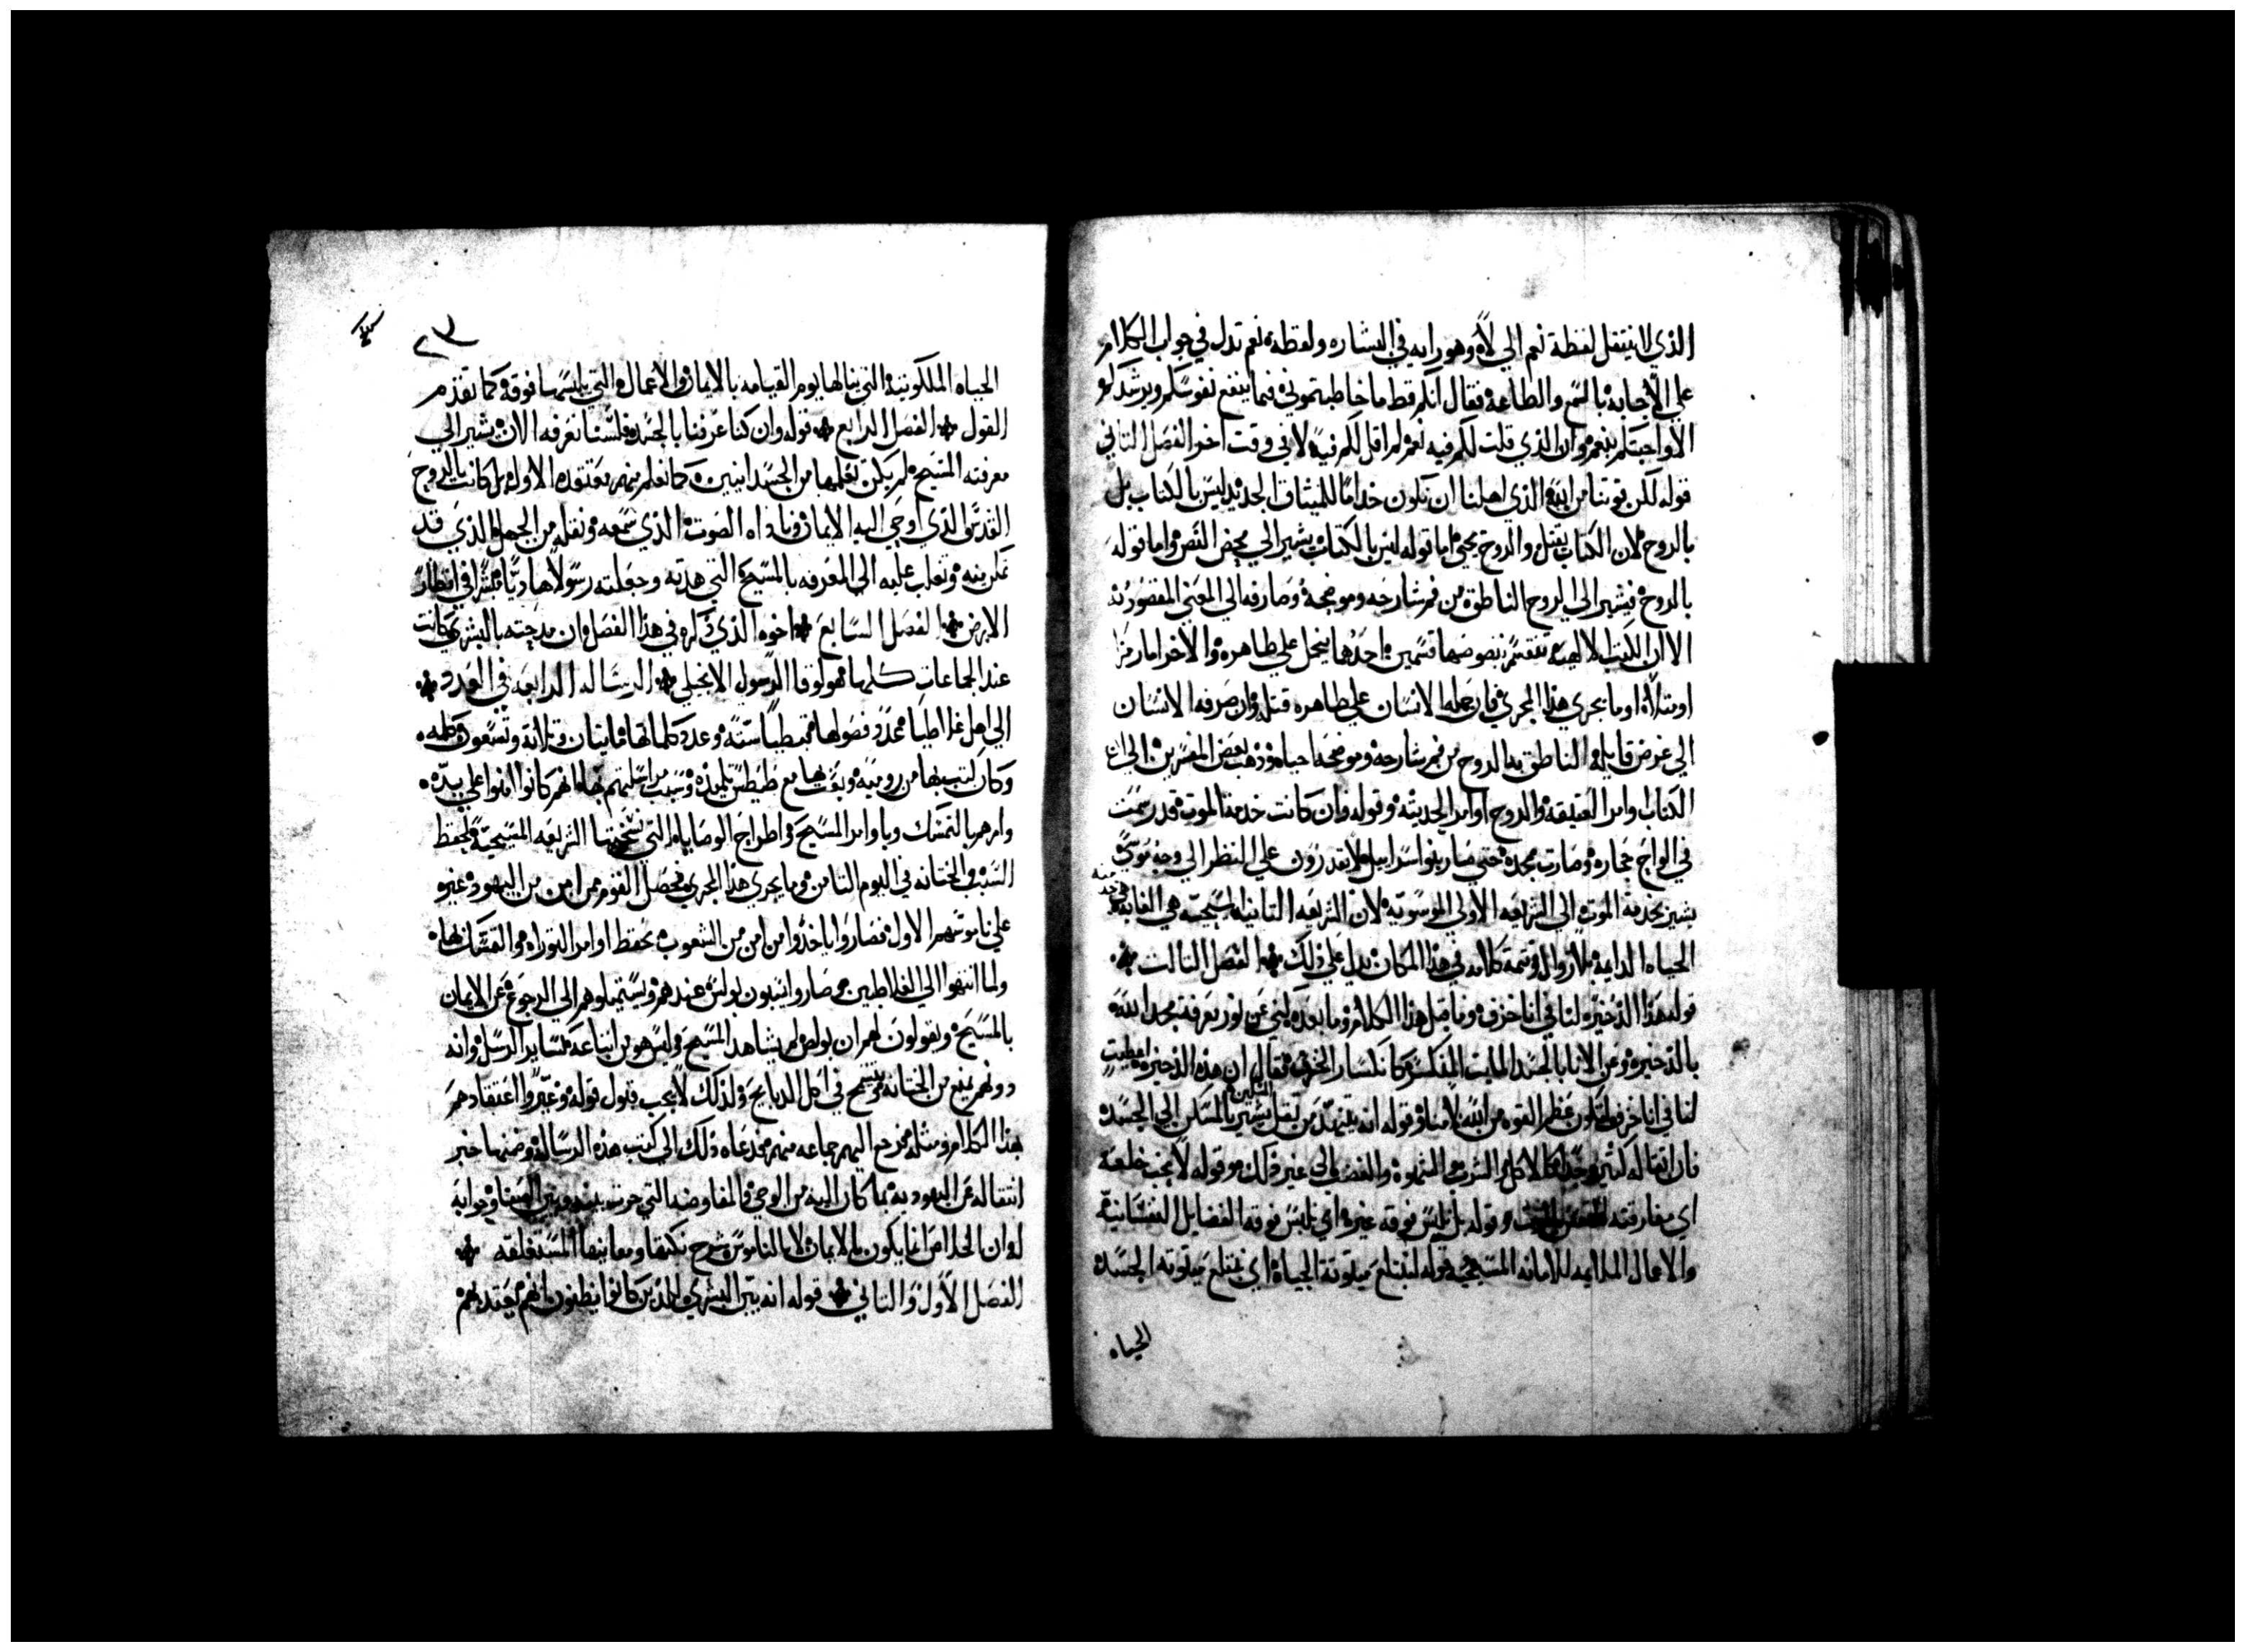 الذي لا ينتقل لفظة نعم الي لا وهو رايه في البشاره ولفظة نعم تدل في جواب الكلام
علي الاجابه بالسمع والطاعة فقال انكم قط ما خاطبتموني فيما ينفع نفوسكم ويرشدكم
الا واجبتكم بنعم وان الذي قلت لكم فيه نعم لم اقل لكم فيه لا في وقت اخر الفصل الثاني
قوله لكن قوتنا من الله الذي اهلنا ان نكون خداما للميثاق الجديد ليس بالكتاب بل
بالروح لان الكتاب يقتل والروح يحيي اما قوله ليس بالكتاب يشير الي محض النص واما قوله
بالروح فيشير الي الروح الناطقة من فم شارحه وموضحه وصارفه الي المعني المقصود به
الا ان الكتب الالهية تنقسم نصوصها قسمين احدهما يحمل علي ظاهره والاخر اما رمزا
او مثلا او ما يجري هذا المجري فان حمله الانسان علي ظاهره قتله وان صرفه الانسان
الي غرض قايله الناطق به الروح من فم شارحه وموضحه احياه وذهب بعض المفسرين الي ان
الكتاب اوامر العتيقة والروح اوامر الحديثة وقوله وان كانت خدمة الموت قد رسمت
في الواح حجاره وصارت بمجد حتي صار بنو اسراييل لا يقدرون علي النظر الي وجه موسي
يشير بخدمة الموت الي الشريعه الاولي الموسويه لان الشريعه الثانيه المسيحية هي الغاية
الحياه الدايمة بلا زوال وتتمة كلامه في هذا المكان يدل علي ذلك الفصل الثالث
قوله هذا الذخيره لنا في انا خزف وما قبل هذا الكلام وما بعده يكني عن نور معرفة مجد الله
بالذخيره وعن الانا بالجسد المايت المنكسر كانكسار الخزف فقال ان هذه الذخيره اعطيت
لنا في انا خزف لتكون عظم القوه من الله لا منا وقوله انه يتنهد من ثقل يشير بالمسكن الي الجسد
فان اثقاله كثيره جدا كالاكل والشرب والشهوة والغضب الي غير ذلك وقوله لا نحب خلعه
اي مفارقته وقوله بل نلبس فوقه غيره اي نلبس فوقه الفضايل النفسانية
والاعمال الملايمه للامانه المسيحيه قوله لتبتلع ميتوتة الحياة اي تبتلع ميتوته الجسد
الحياه
٢٣
الحياه الملكوتية التي ينالها يوم القيامه بالايمان والاعمال التي يلبسها فوقه كما تقدم
القول الفصل الرابع قوله وان كنا عرفنا بالجسد فلسنا نعرفه الان يشير الي
معرفته المسيح لم يكن تعلمها من الجسدانيين كما تعلم منهم معتقده الاول بل كانت بالروح
القدس الذي اوحي اليه الايمان وناداه الصوت الذي سمعه ونقله من الجهل الذي قد
تمكن منه وتغلب عليه الي المعرفه بالمسيح التي هدته وجعلته رسولا هاديا مبشرا في اقطار
الارض الفصل السابع اخوه الذي ذكره في هذا الفصل وان مدحته بالبشري كانت
عند الجماعات كلها فهو لوقا الرسول الانجيلي الرسالة الرابعه في العدد
الي اهل غلاطيا عدد فصولها قبطيا ستة وعدد كلماتها مايتان وثلاثة وتسعون كلمه
وكان كتب بها من رومية وبعث بها مع طيطس تلميذه وسبب مراسلتهم بها انهم كانوا امنوا علي يده
وامرهم بالتمسك باوامر المسيح واطراح الوصايا التي نسختها الشريعه المسيحية كحفظ
السبت والختانه في اليوم الثامن وما يجري هذا المجري فحصل القوم ممن امن من اليهود وغيره
علي ناموسهم الاول فصاروا ياخذوا من امن من الشعوب بحفظ اوامر التوراه والتمسك بها
ولما انتهوا الي الغلاطيين صاروا يثلبون بولس عندهم ويستميلوهم الي الرجوع عن الايمان
بالمسيح ويقولون لهم ان بولص لم يشاهد المسيح وليس هو من اتباعه كساير الرسل وانه
دونهم يمنع من الختانه ويفسح في اكل الدبايح ولذلك لا يجب قبول قوله وغيروا اعتقادهم
بهذا الكلام ومثله فرجع اليهم جماعه منهم فدعاه ذلك الي كتب هذه الرسالة وضمنها خبر
انتقاله عن اليهوديه بما كان اليه من الوحي والمفاوضه التي جرت بينه وبين الصفا وجوابه
له وان الخلاص انما يكون بالايمان لا بالناموس وشرح نكتها ومعانيها المستغلقه
الفصل الاول والثاني قوله انه يبين البشري الذين كانوا يظنون بانهم يعتد بهم